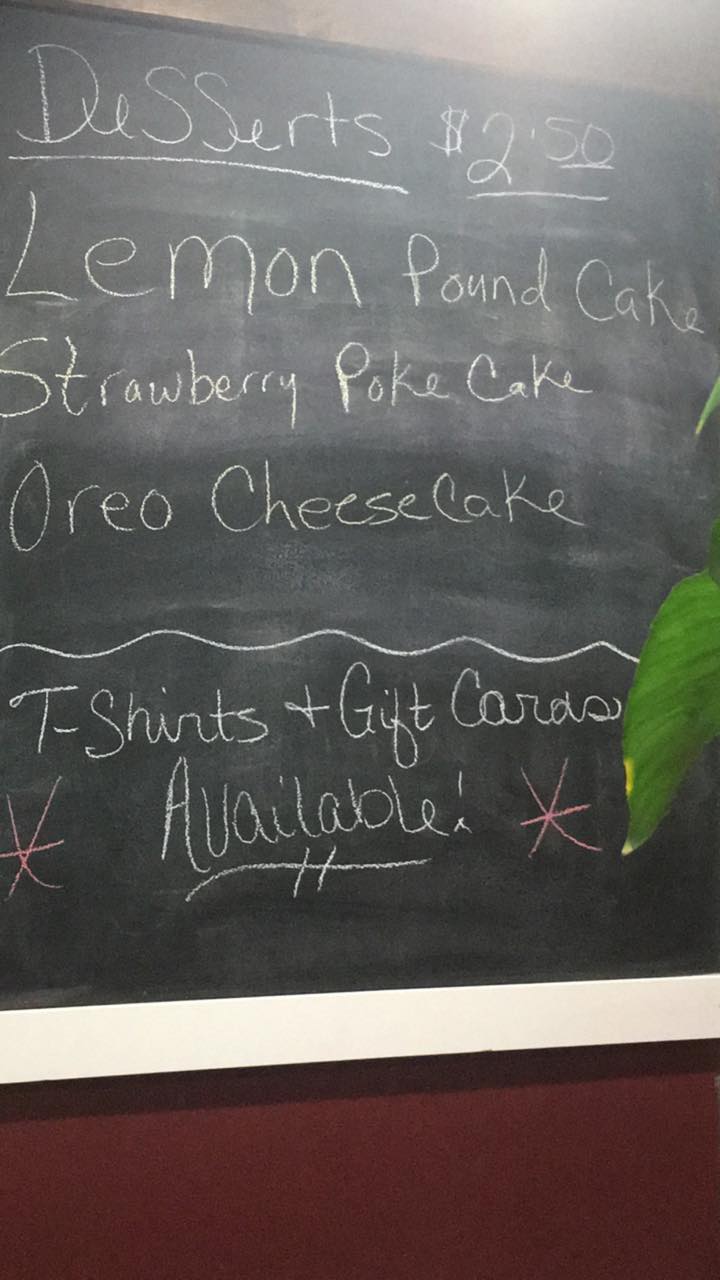 Desserts $2.50
Lemon Pound Cake
Strawberry Poke Cake
Oreo Cheesecake
T-Shirts + Gift Cards
Available!